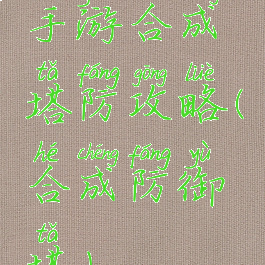 手游合成
tǎ fáng gōng lüè
塔防攻略(
hé chéng fáng yù
合成防御
tǎ
塔)